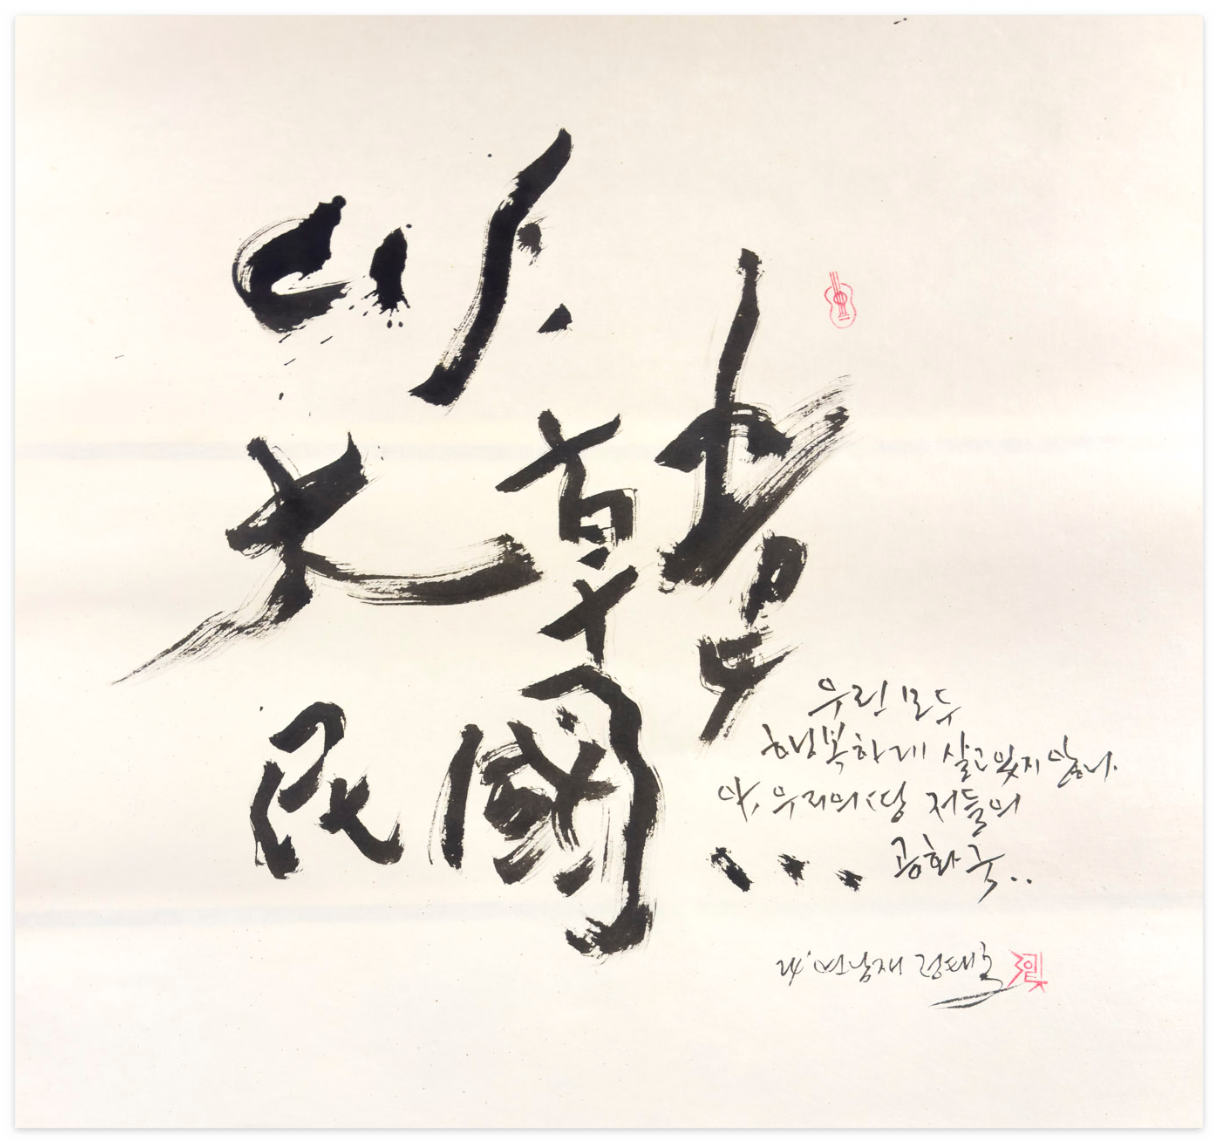 아,
大韓
民國
...
우린 모두
행복하게 살고 있지 않나.
아, 우리의 땅 저들의
공화국..
24. 연남재 정태춘